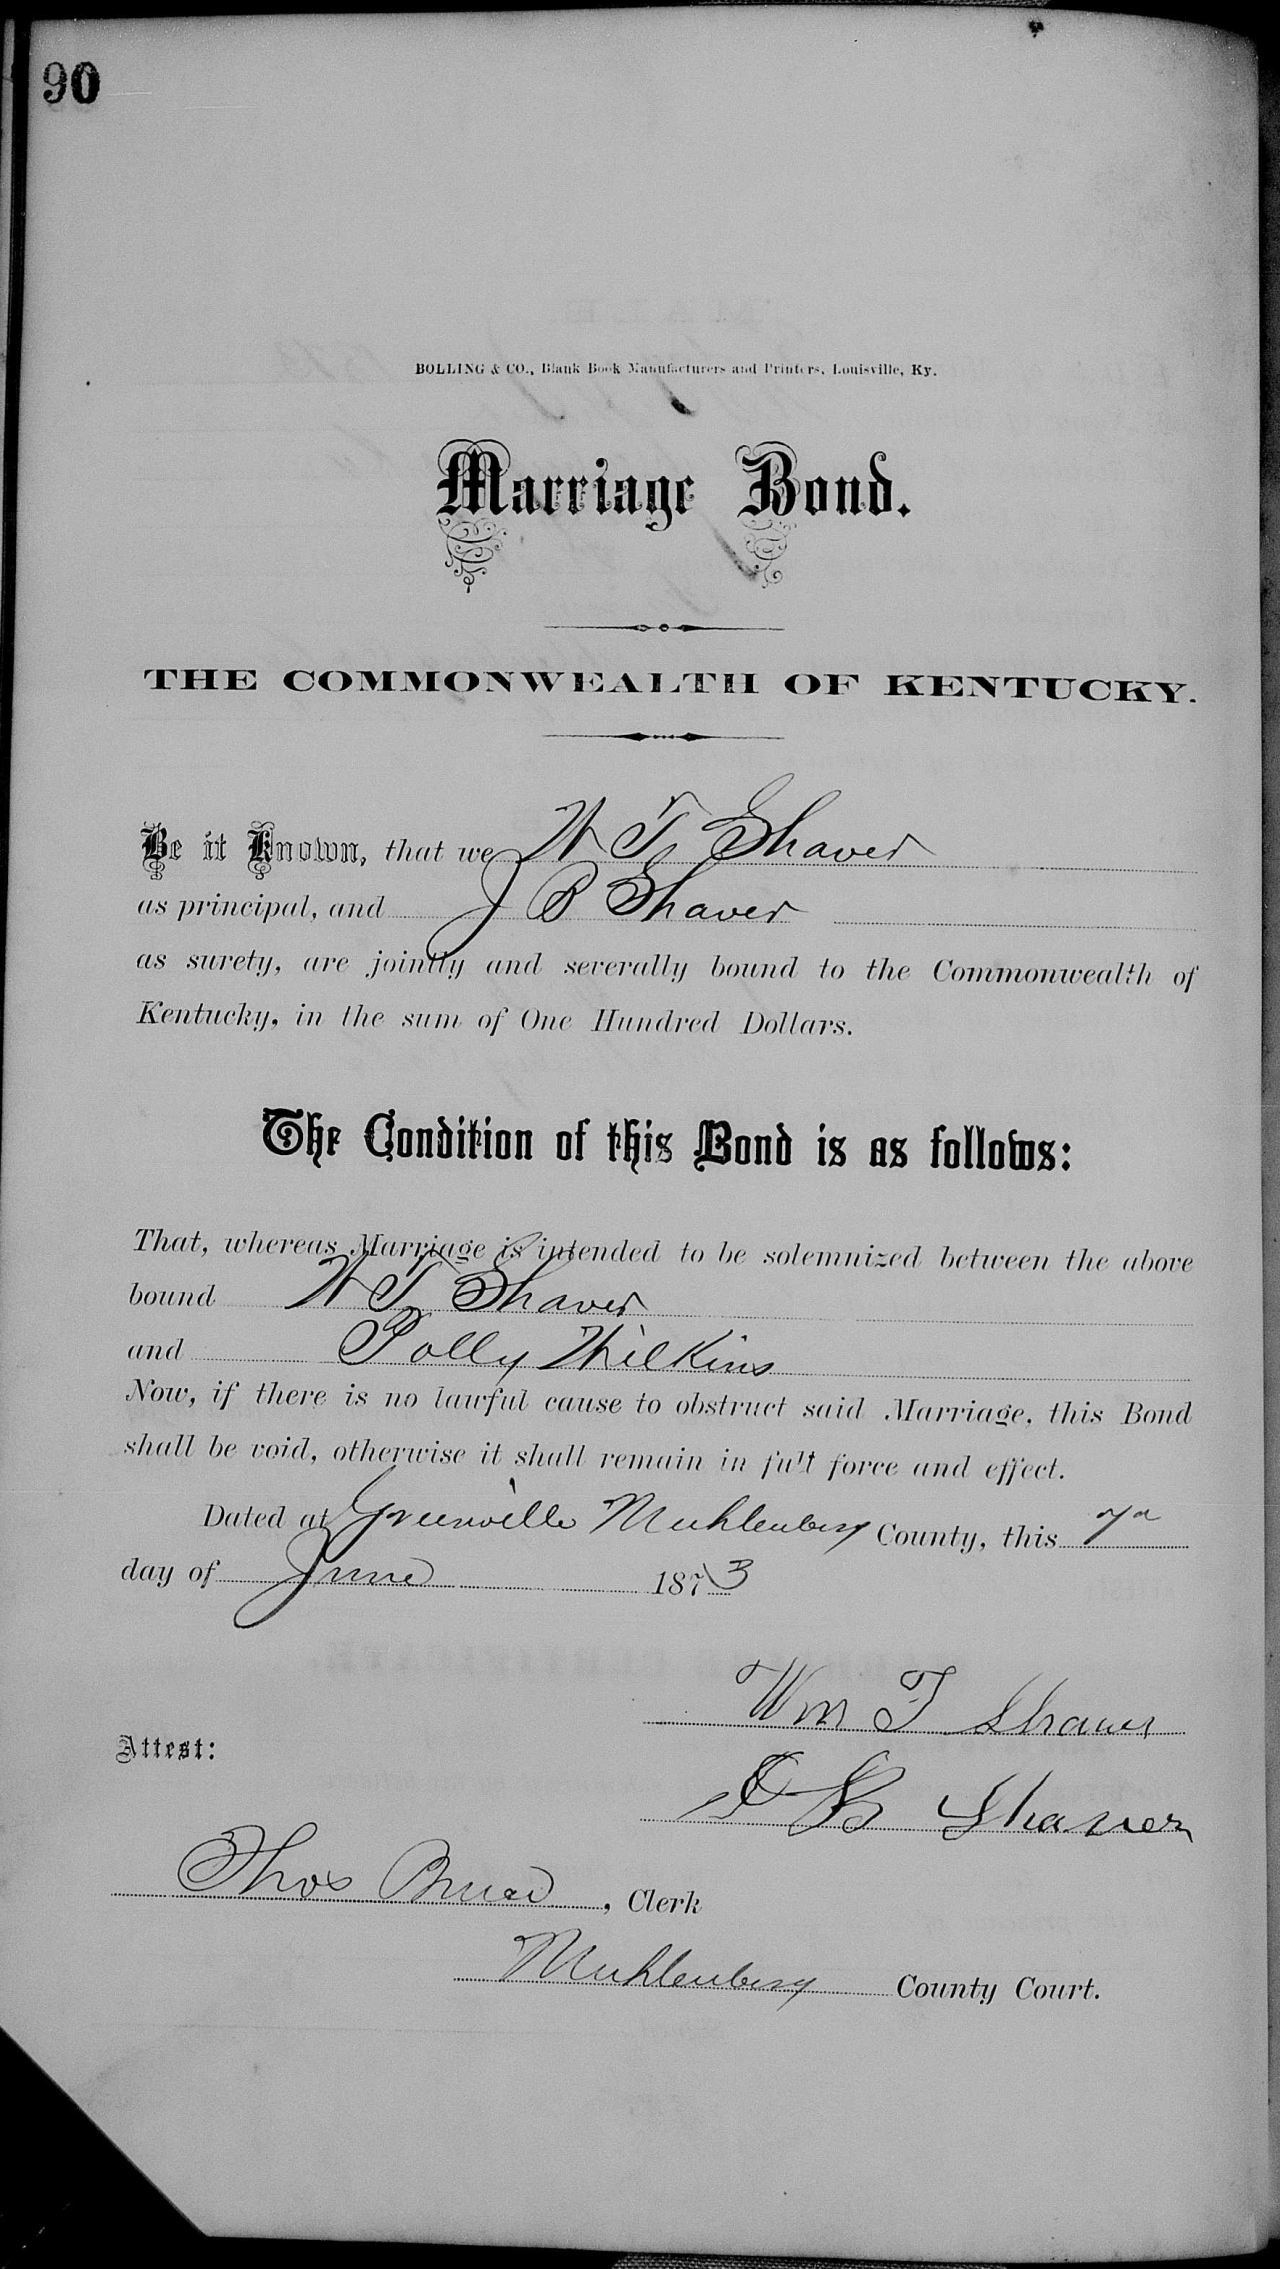 90
BOLLING & CO., Blank Book Manufacturers and Printers, Louisville, Ky.
Marriage Bond.
THE COMMONWEALTH OF KENTUCKY.
Be it Known, that we W T Shaver
as principal, and J B Shaver
as surety, are jointly and severally bound to the Commonwealth of
Kentucky, in the sum of One Hundred Dollars.
The Condition of this Bond is as follows:
That, whereas Marriage is intended to be solemnized between the above
bound W T Shaver
and Polly Wilkins
Now, if there is no lawful cause to obstruct said Marriage, this Bond
shall be void, otherwise it shall remain in full force and effect.
Dated at Greenville Muhlenberg County, this 7th
day of June 1873
Wm T Shaver
Attest:
J B Shaver
Thos Bruce, Clerk
Muhlenberg County Court.